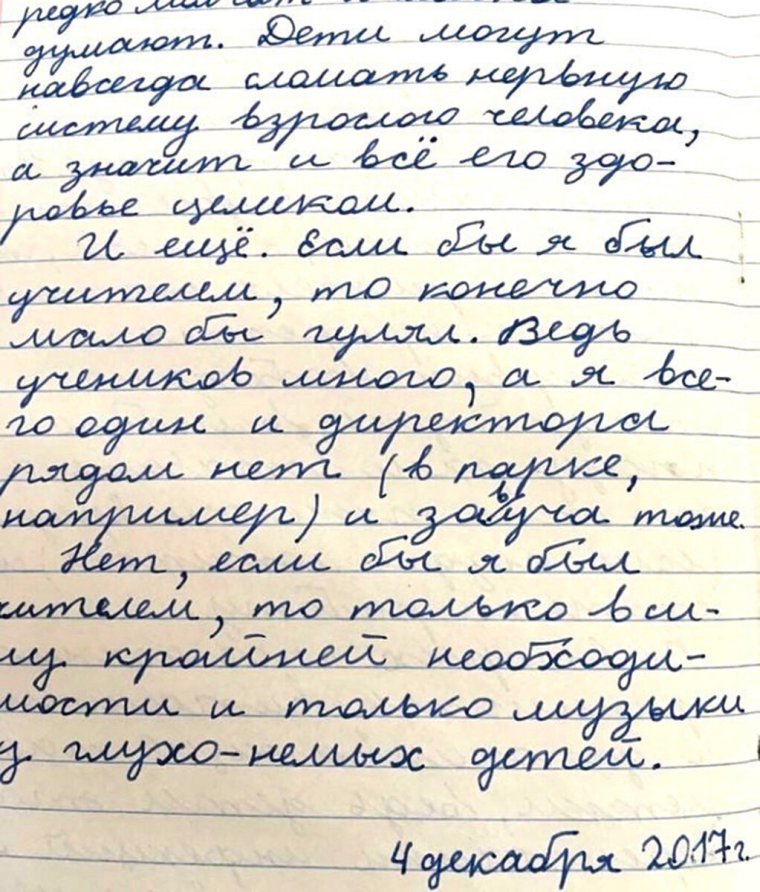 редко
думают. Дети могут
навсегда сломать нервную
систему взрослого человека,
а значит и всё его здо-
ровье целиком.
И ещё. Если бы я был
учителем, то конечно
мало бы гулял. Ведь
учеников много, а я все-
го один и директора
рядом нет (в парке,
например) и завуча тоже.
Нет, если бы я был
чителем, то только в си-
лу крайней необходи-
мости и только музыки
у глухо-немых детей.
4 декабря 2017г.